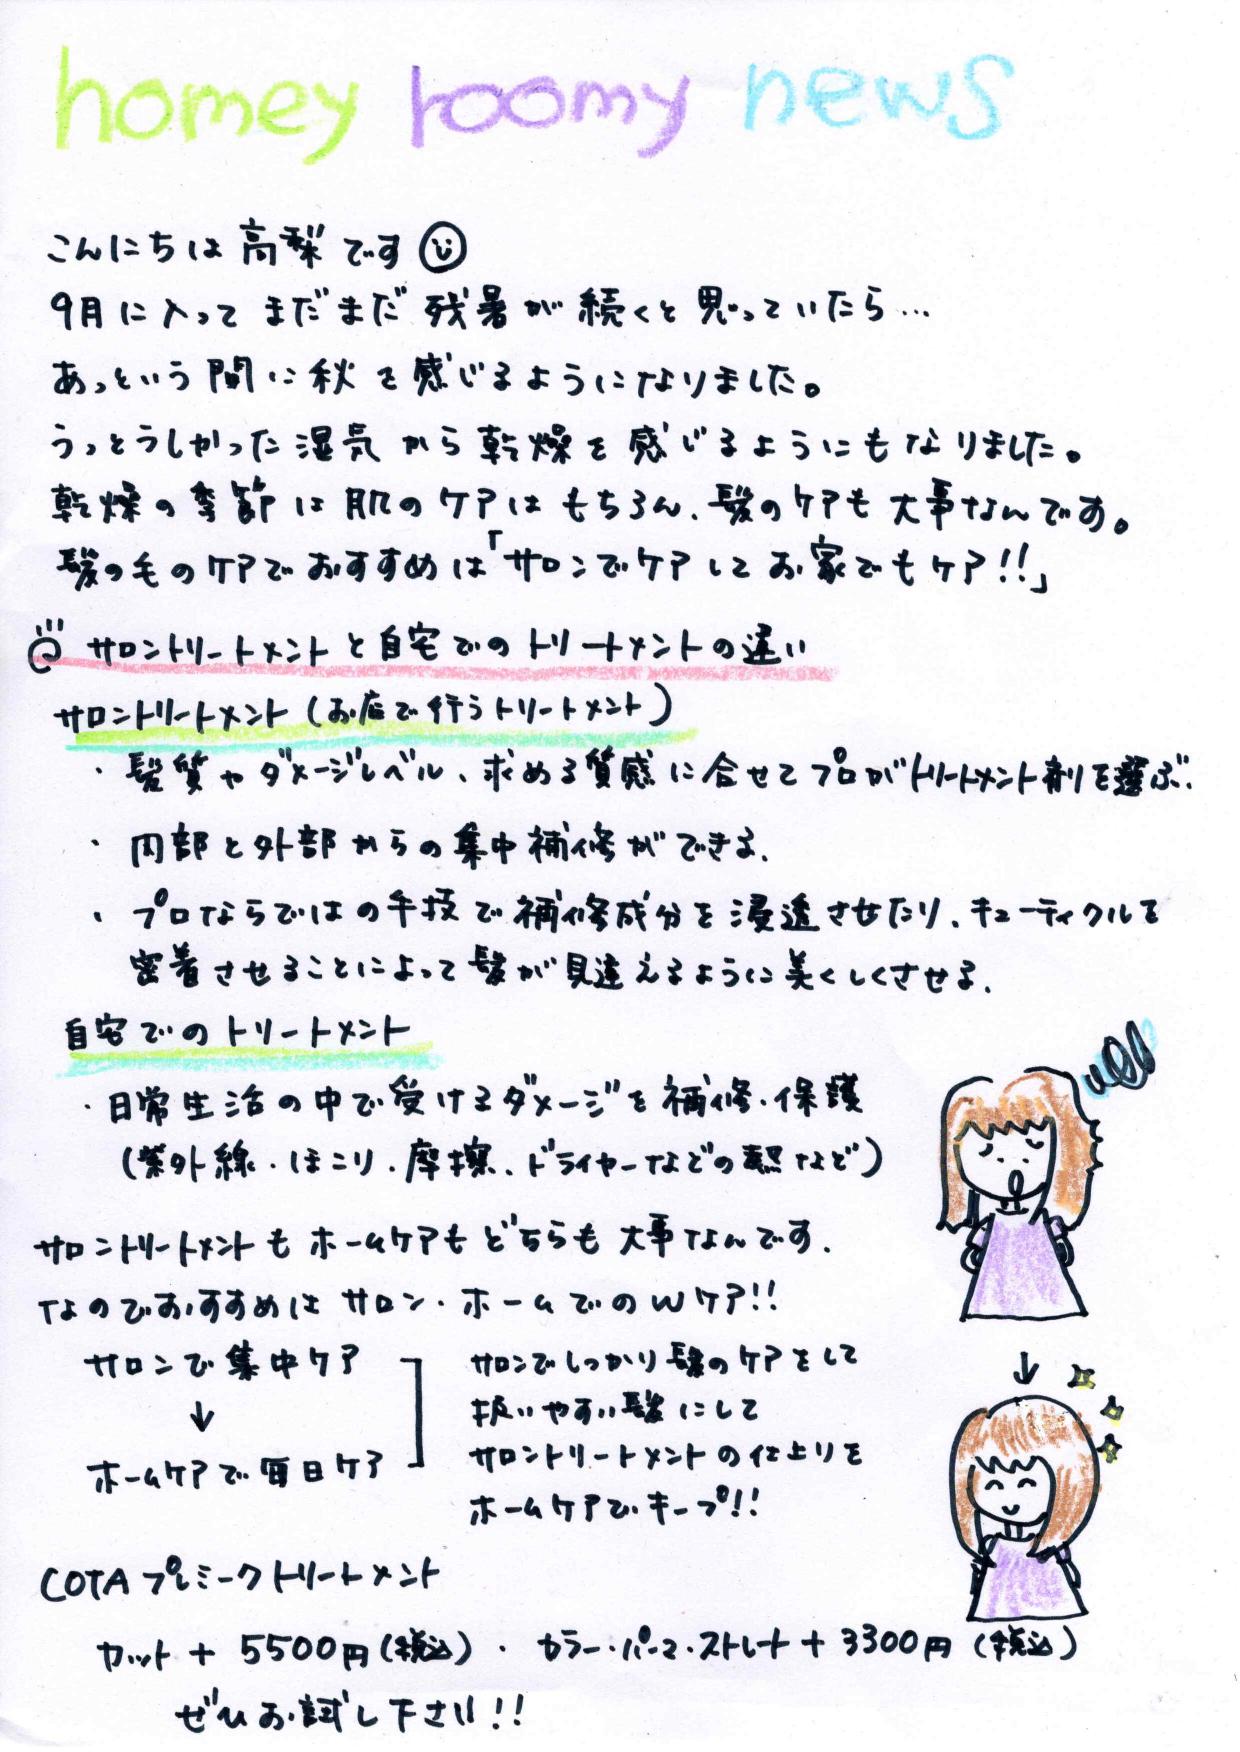 homey roomy news
こんにちは高梨です
9月に入ってまだまだ残暑が続くと思っていたら…
あっという間に秋を感じるようになりました。
うっとうしかった湿気から乾燥を感じるようにもなりました。
乾燥の季節は肌のケアはもちろん、髪のケアも大事なんです。
髪の毛のケアでおすすめは「サロンでケアしてお家でもケア!!」
サロントリートメントと自宅でのトリートメントの違い
サロントリートメント(お店で行うトリートメント)
・髪質やダメージレベル、求める質感に合せてプロがトリートメント剤を選ぶ、
・内部と外部からの集中補修ができる、
・プロならではの手技で補修成分を浸透させたり、キューティクルを
密着させることによって髪が見違えるように美くしくさせる、
自宅でのトリートメント
・日常生活の中で受けるダメージを補修・保護
(紫外線・ほこり・摩擦、ドライヤーなどの熱など)
サロントリートメントもホームケアもどちらも大事なんです、
なのでおすすめはサロン・ホームでのWケア!!
サロンで集中ケア
↓
ホームケアで毎日ケア
サロンでしっかり髪のケアをして
扱いやすい髪にして
サロントリートメントの仕上りを
ホームケアでキープ!!
↓
COTAプレミークトリートメント
カット+5500円(税込)・カラー・パーマ・ストレート+3300円(税込)
ぜひお試し下さい!!